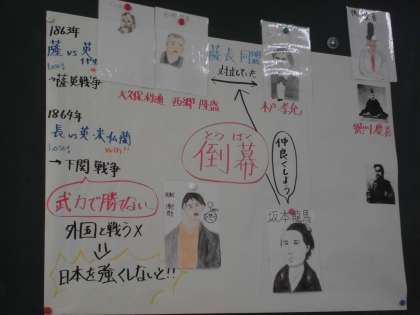 1863年
薩 vs 英
→薩英戦争
1864年
長 vs 英・米・仏・蘭
→下関戦争
武力で勝てない
外国と戦う×
日本を強くしないと!!
大久保利通
西郷隆盛
薩長同盟
対立していた
木戸孝允
とうばく
倒幕
仲良くしよう
坂本龍馬
徳川慶喜